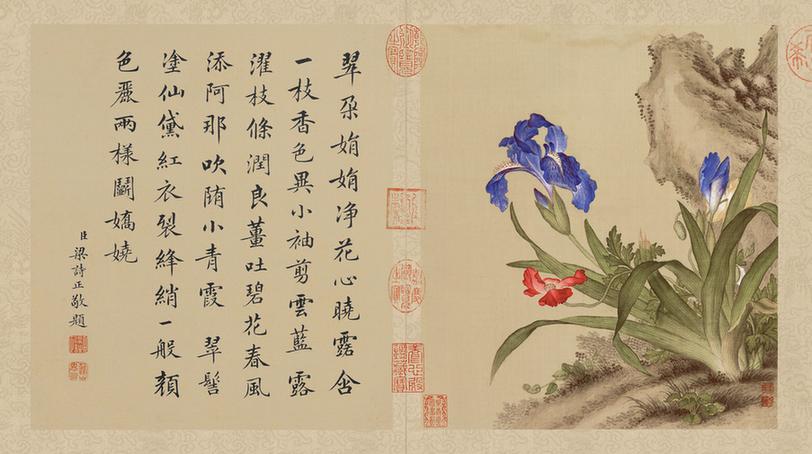 翠朶娟娟净花心曉露含
一枝香色異小袖剪雲藍露
濯枝條潤良薑吐碧花春風
添阿那吹墮小青霞 翠髻
塗仙黛紅衣裂絳綃一般顏
色麗兩樣鬭嬌嬈
臣梁詩正敬題